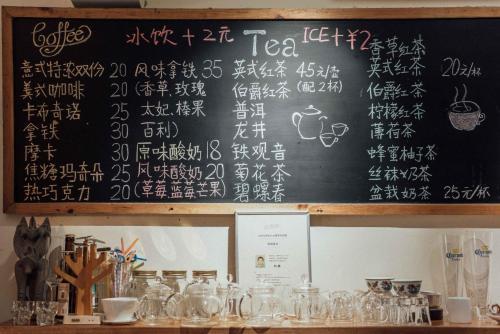 Coffee 冰饮+2元 Tea ICE+¥2
意式特浓双份 20
美式咖啡 20
卡布奇诺 25
拿铁 30
摩卡 30
焦糖玛奇朵 25
热巧克力 20
风味拿铁 35
(香草,玫瑰
太妃.榛果
百利)
原味酸奶 18
风味酸奶 20
(草莓蓝莓芒果)
英式红茶 45元/壶
伯爵红茶 (配2杯)
普洱
龙井
铁观音
菊花茶
碧螺春
香草红茶
英式红茶 20元/杯
伯爵红茶
柠檬红茶
薄荷茶
蜂蜜柚子茶
丝袜奶茶
盆栽奶茶 25元/杯
Corona